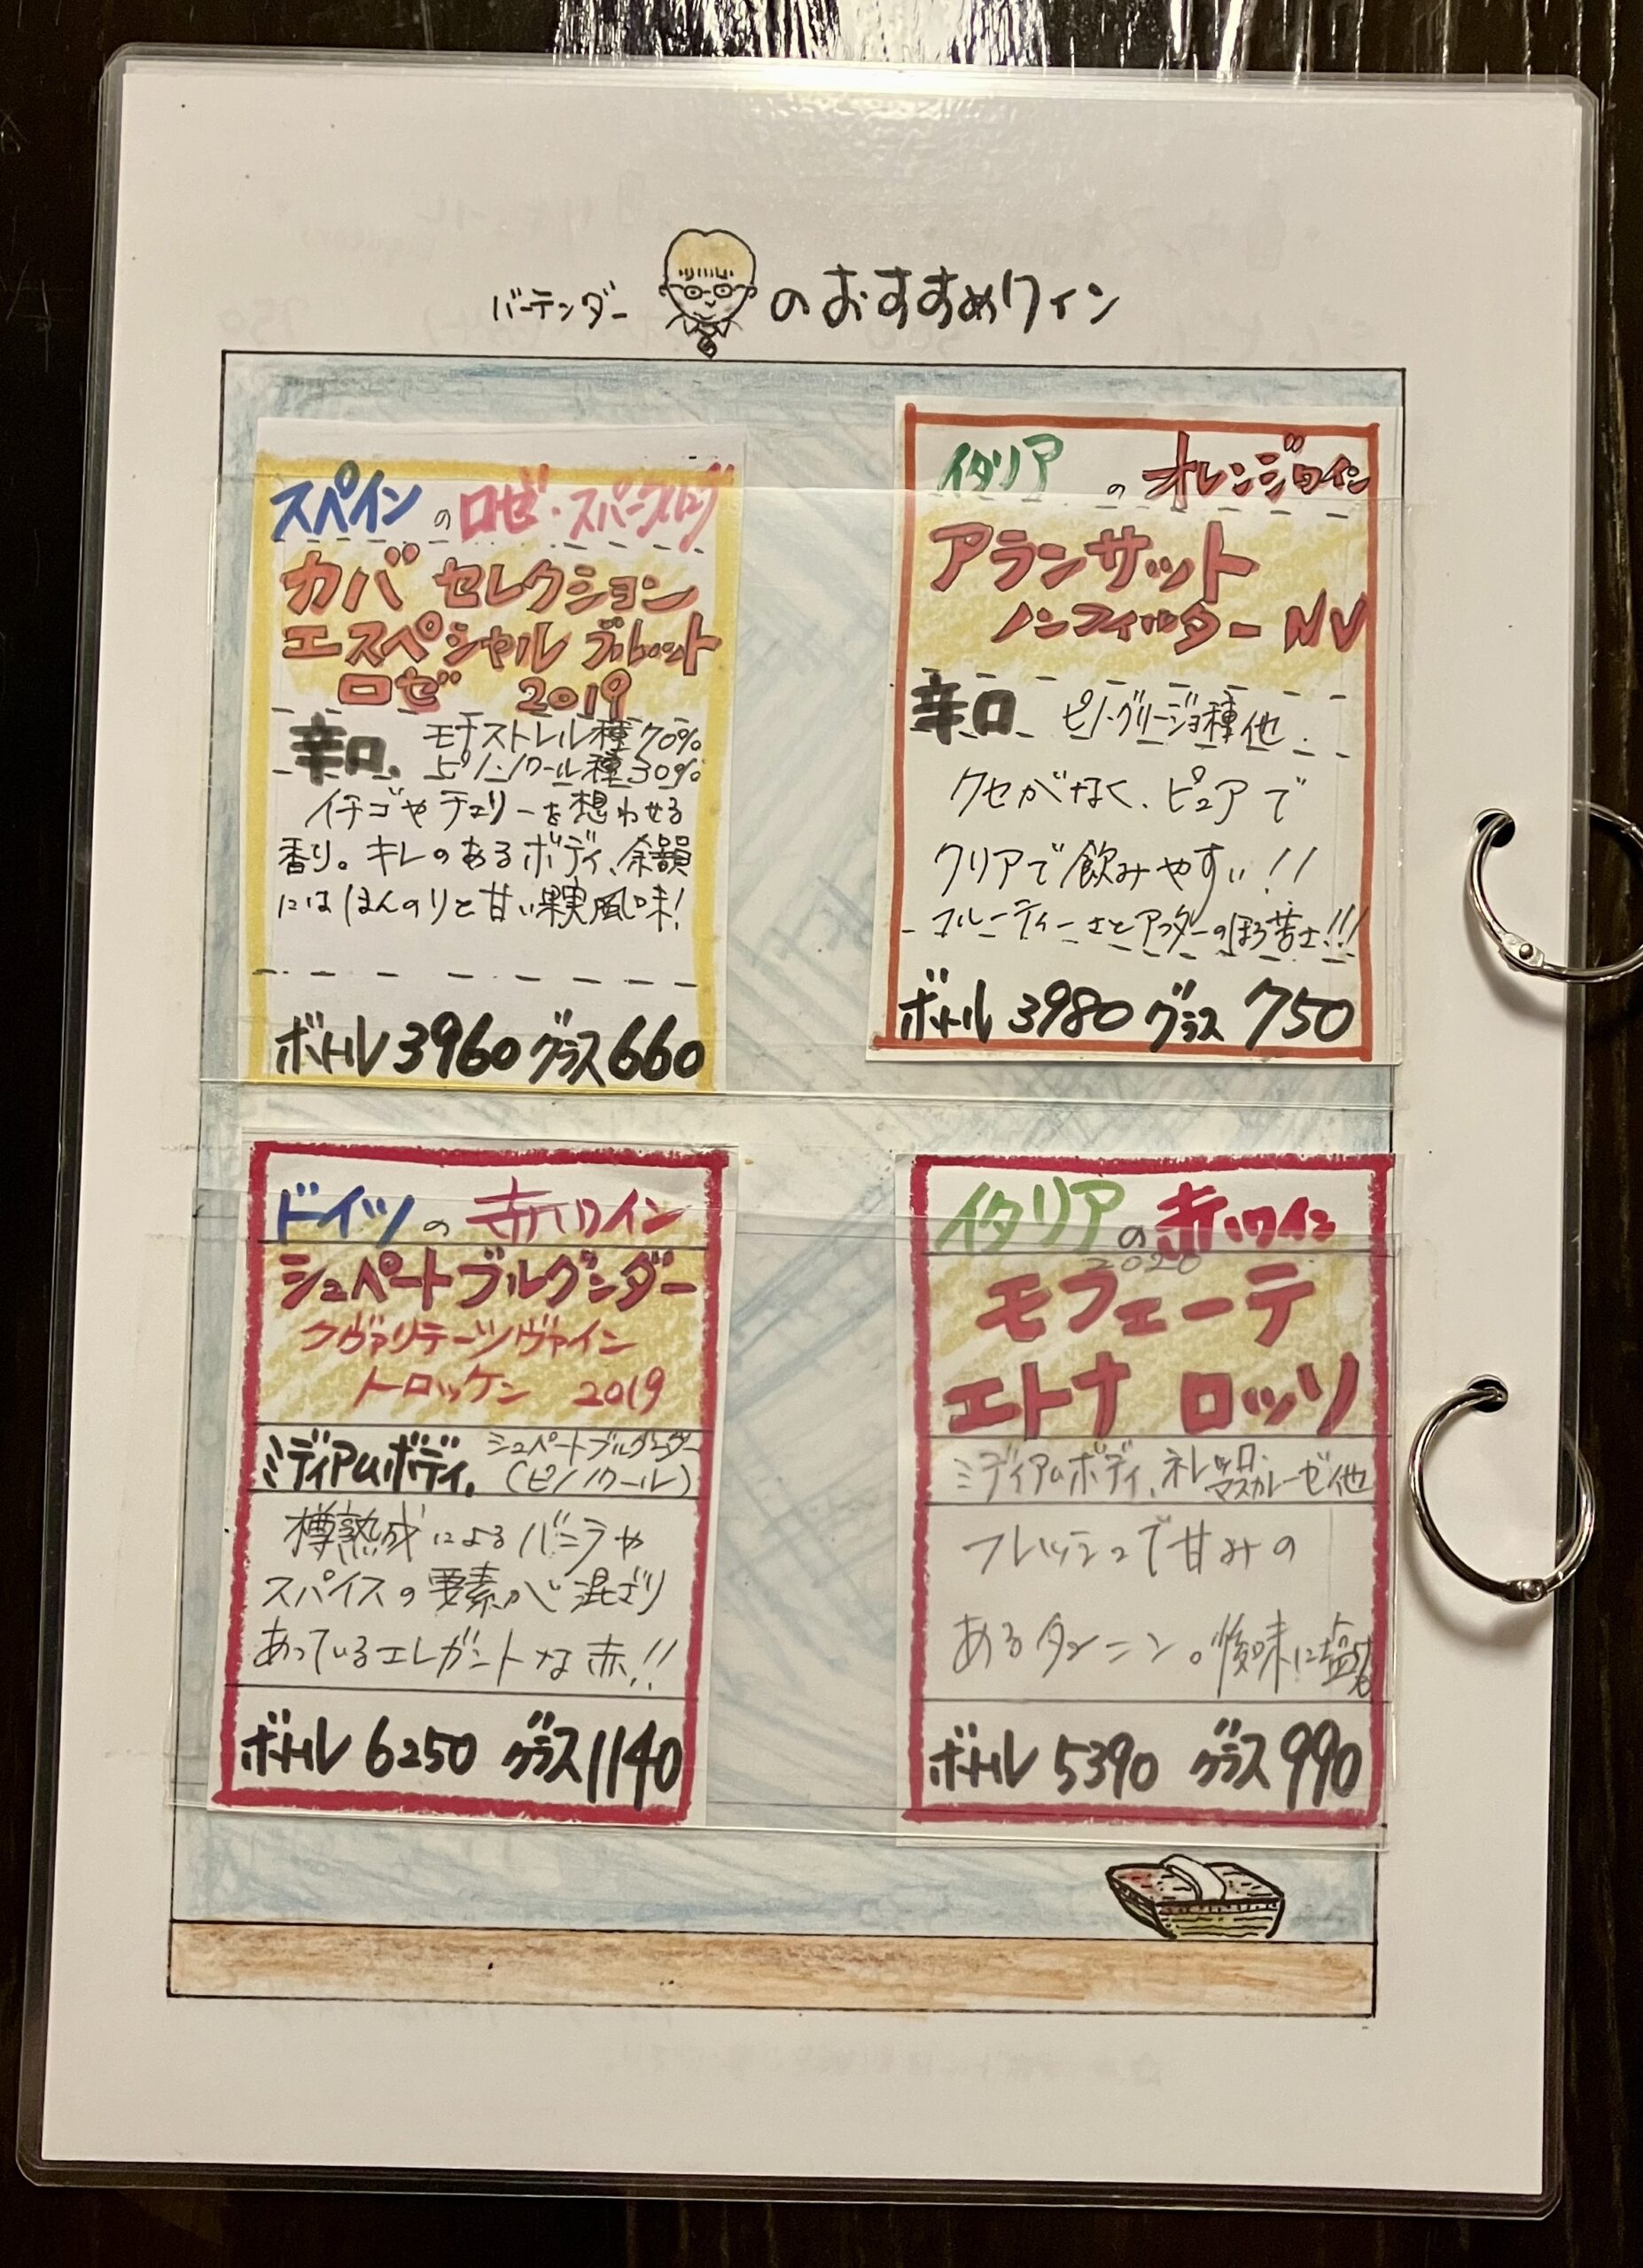 バーテンダー のおすすめワイン
スペインのロゼ・スパークリング
カバ セレクション
エスペシャル ブルット
ロゼ 2019
辛口、 モナストレル種70%
ピノ・ノワール種30%
イチゴやチェリーを想わせる
香り。キレのあるボディ、余韻
にはほんのりと甘い果実風味!
ボトル 3960 グラス 660
イタリア の オレンジワイン
アランサット
ノンフィルター NV
辛口 ピノ・グリージョ種他
クセがなく、ピュアで
クリアで飲みやすい!!
フルーティーさとアフターのほろ苦さ!!!
ボトル 3980 グラス 750
ドイツの赤ワイン
シュペートブルグンダー
クヴァリテーツヴァイン
トロッケン 2019
ミディアムボディ、 シュペートブルグンダー
(ピノノワール)
樽熟成によるバニラや
スパイスの要素が混ざり
あっているエレガントな赤!!
ボトル 6250 グラス 1140
イタリアの赤ワイン
2020
モフェーテ
エトナ ロッソ
ミディアムボディ、ネレッロ・
マスカレーゼ他
フレッシュで甘みの
あるタンニン。後味に塩
ボトル 5390 グラス 990